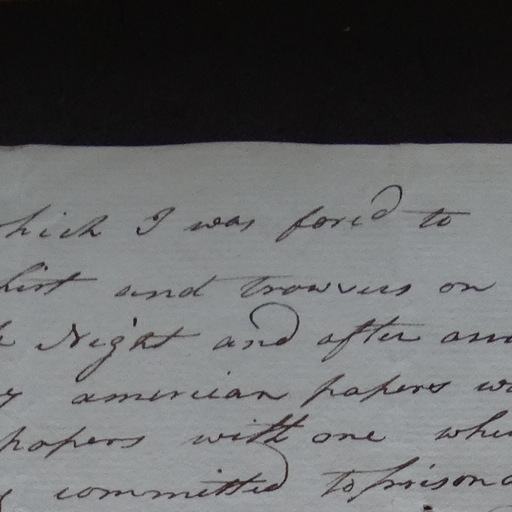 hich I was forcd to
hirt and trowvers on
Night and after
american papers
papers with one
committed to prison